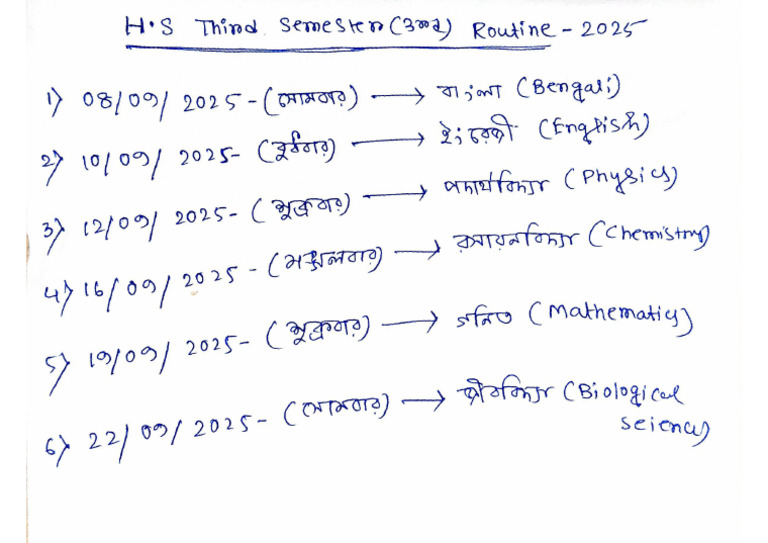 H.S Third Semester (3rd) Routine - 2025
1) 08/09/2025 - (সোমবার) → বাংলা (Bengali)
2) 10/09/2025 - (বুধবার) → ইংরেজী (English)
3) 12/09/2025 - (শুক্রবার) → পদার্থবিদ্যা (Physics)
4) 16/09/2025 - (মঙ্গলবার) → রসায়নবিদ্যা (Chemistry)
5) 19/09/2025 - (শুক্রবার) → গনিত (Mathematics)
6) 22/09/2025 - (সোমবার) → জীববিদ্যা (Biological
seience)